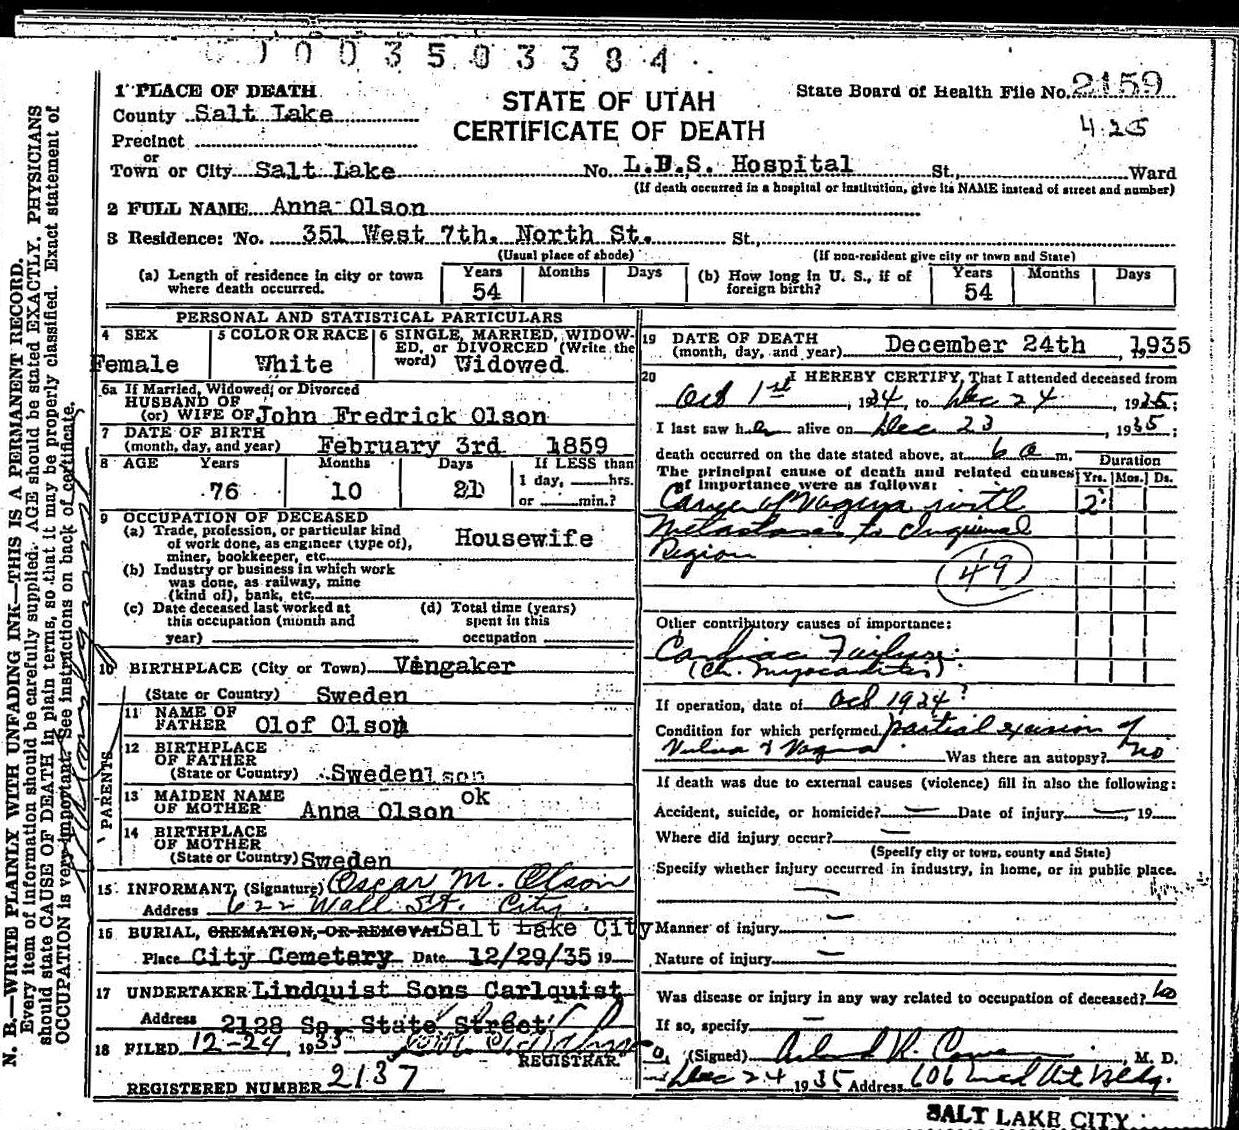 1003503384
1 PLACE OF DEATH
County Salt Lake
Precinct
or
Town or City Salt Lake
STATE OF UTAH
CERTIFICATE OF DEATH
State Board of Health File No. 2159
425
No. L.D.S. Hospital St., Ward
(If death occurred in a hospital or institution, give its NAME instead of street and number)
2 FULL NAME Anna Olson
3 Residence: No. 351 West 7th. North St. St.,
(Usual place of abode) (If non-resident give city or town and State)
(a) Length of residence in city or town where death occurred. Years 54 Months Days
(b) How long in U. S., if of foreign birth? Years 54 Months Days
PERSONAL AND STATISTICAL PARTICULARS
4 SEX Female
5 COLOR OR RACE White
6 SINGLE, MARRIED, WIDOWED, or DIVORCED (Write the word) Widowed
6a If Married, Widowed, or Divorced
HUSBAND OF
(or) WIFE OF John Fredrick Olson
7 DATE OF BIRTH
(month, day, and year) February 3rd 1859
8 AGE Years 76 Months 10 Days 21
If LESS than
1 day, hrs.
or min.?
9 OCCUPATION OF DECEASED
(a) Trade, profession, or particular kind
of work done, as engineer (type of),
miner, bookkeeper, etc. Housewife
(b) Industry or business in which work
was done, as railway, mine
(kind of), bank, etc.
(c) Date deceased last worked at
this occupation (month and
year)
(d) Total time (years)
spent in this
occupation
10 BIRTHPLACE (City or Town) Vingaker
(State or Country) Sweden
PARENTS
11 NAME OF
FATHER Olof Olson
12 BIRTHPLACE
OF FATHER
(State or Country) Sweden
13 MAIDEN NAME
OF MOTHER Anna Olson ok
14 BIRTHPLACE
OF MOTHER
(State or Country) Sweden
15 INFORMANT, (Signature) Oscar M. Olson
Address 622 Wall St. City.
16 BURIAL, CREMATION, OR REMOVAL Salt Lake City
Place City Cemetery Date 12/29/35 19
17 UNDERTAKER Lindquist Sons Carlquist
Address 2128 So. State Street
18 FILED 12-24, 1935
REGISTRAR
REGISTERED NUMBER 2137
19 DATE OF DEATH
(month, day, and year) December 24th, 1935
20 I HEREBY CERTIFY, That I attended deceased from
Oct 1st, 1934, to Dec 24, 1935;
I last saw her alive on Dec 23, 1935;
death occurred on the date stated above, at 6 a m.
The principal cause of death and related causes
of importance were as follows:
Duration
Yrs. Mos. Ds.
Cancer of Vagina with 2
Metastases to Inguinal
Region
49
Other contributory causes of importance:
Cardiac Failure
(Ch. Myocarditis)
If operation, date of Oct 1934
Condition for which performed partial excision of
Vulva & Vagina Was there an autopsy? no
If death was due to external causes (violence) fill in also the following:
Accident, suicide, or homicide? Date of injury 19
Where did injury occur?
(Specify city or town, county and State)
Specify whether injury occurred in industry, in home, or in public place.
Manner of injury
Nature of injury
Was disease or injury in any way related to occupation of deceased? no
If so, specify
(Signed) M. D.
Dec 24 1935 Address 606 Med Art Bldg.
SALT LAKE CITY
N. B.—WRITE PLAINLY WITH UNFADING INK—THIS IS A PERMANENT RECORD.
Every item of information should be carefully supplied. AGE should be stated EXACTLY. PHYSICIANS
should state CAUSE OF DEATH in plain terms, so that it may be properly classified. Exact statement of
OCCUPATION is very important. See instructions on back of certificate.